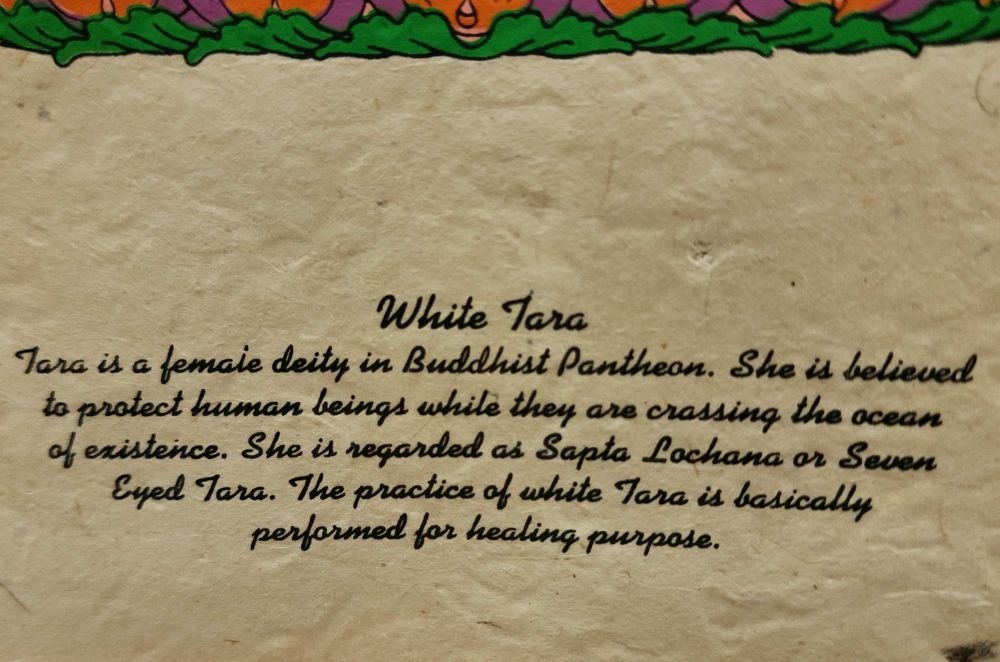 White Tara
Tara is a female deity in Buddhist Pantheon. She is believed
to protect human beings while they are crassing the ocean
of existence. She is regarded as Sapta Lochana or Seven
Eyed Tara. The practice of white Tara is basically
performed for healing purpose.